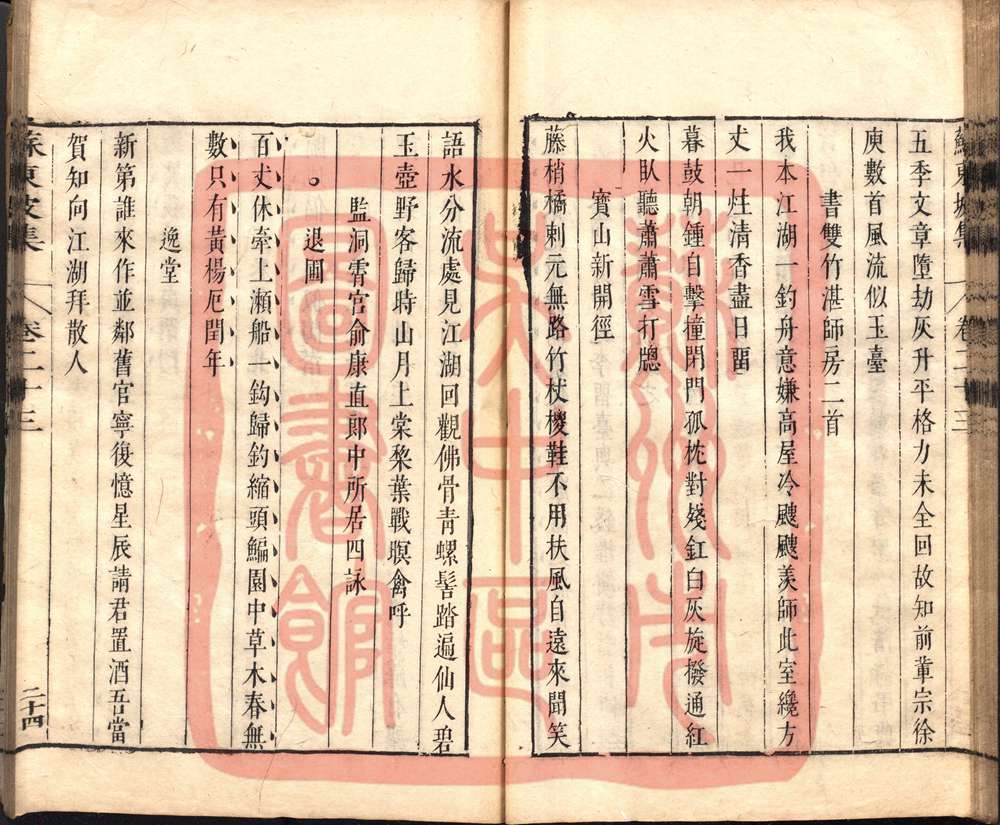 蘇東坡集 卷二十三
五季文章墮劫灰升平格力未全回故知前軰宗徐
庾數首風流似玉臺
書雙竹湛師房二首
我本江湖一釣舟意嫌高屋冷颼颼羨師此室纔方
丈一炷清香盡日畱
暮鼓朝鍾自擊撞閉門孤枕對殘釭白灰旋撥通紅
火臥聽蕭蕭雪打牕
寳山新開徑
藤梢橘刺元無路竹杖椶鞋不用扶風自遠來聞笑
語水分流處見江湖回觀佛骨青螺髻踏遍仙人碧
玉壺野客歸時山月上棠棃葉戰暝禽呼
監洞霄宮俞康直郎中所居四詠
退圃
百丈休牽上瀨船一鈎歸釣縮頭鯿園中草木春無
數只有黃楊厄閏年
逸堂
新第誰來作並鄰舊官寧復憶星辰請君置酒吾當
賀知向江湖拜散人
蘇東坡集 卷二十三 二十四
蘇州市
文史區
圖書館